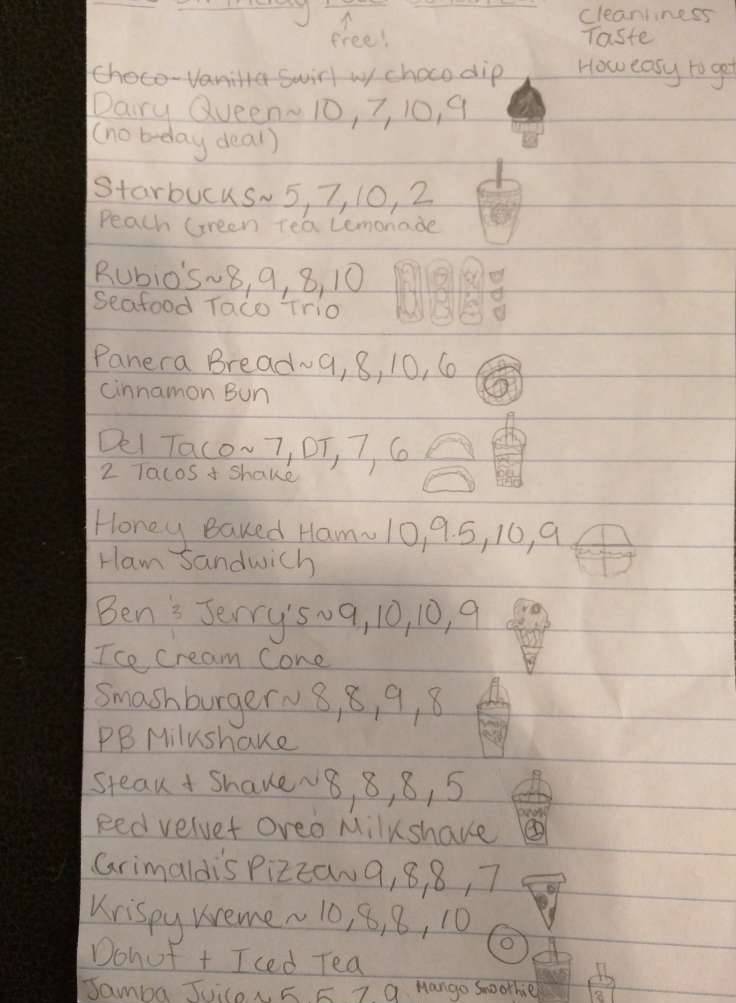 free!
Cleanliness
Taste
How easy to get
Choco-Vanilla Swirl w/ choco dip
Dairy Queen~ 10, 7, 10, 9
(no b-day deal)
Starbucks~ 5, 7, 10, 2
Peach Green Tea Lemonade
Rubio's~8, 9, 8, 10
Seafood Taco Trio
Panera Bread~9, 8, 10, 6
Cinnamon Bun
Del Taco~ 7, DT, 7, 6
2 Tacos + Shake
Honey Baked Ham~ 10, 9.5, 10, 9
Ham Sandwich
Ben & Jerry's~9, 10, 10, 9
Ice Cream Cone
Smashburger~ 8, 8, 9, 8
PB Milkshake
Steak + Shake~8, 8, 8, 5
Red Velvet Oreo Milkshake
Grimaldi's Pizza~9, 8, 8, 7
Krispy Kreme~ 10, 8, 8, 10
Donut + Iced Tea
Jamba Juice~ 5, 5, 7, 9 Mango Smoothie